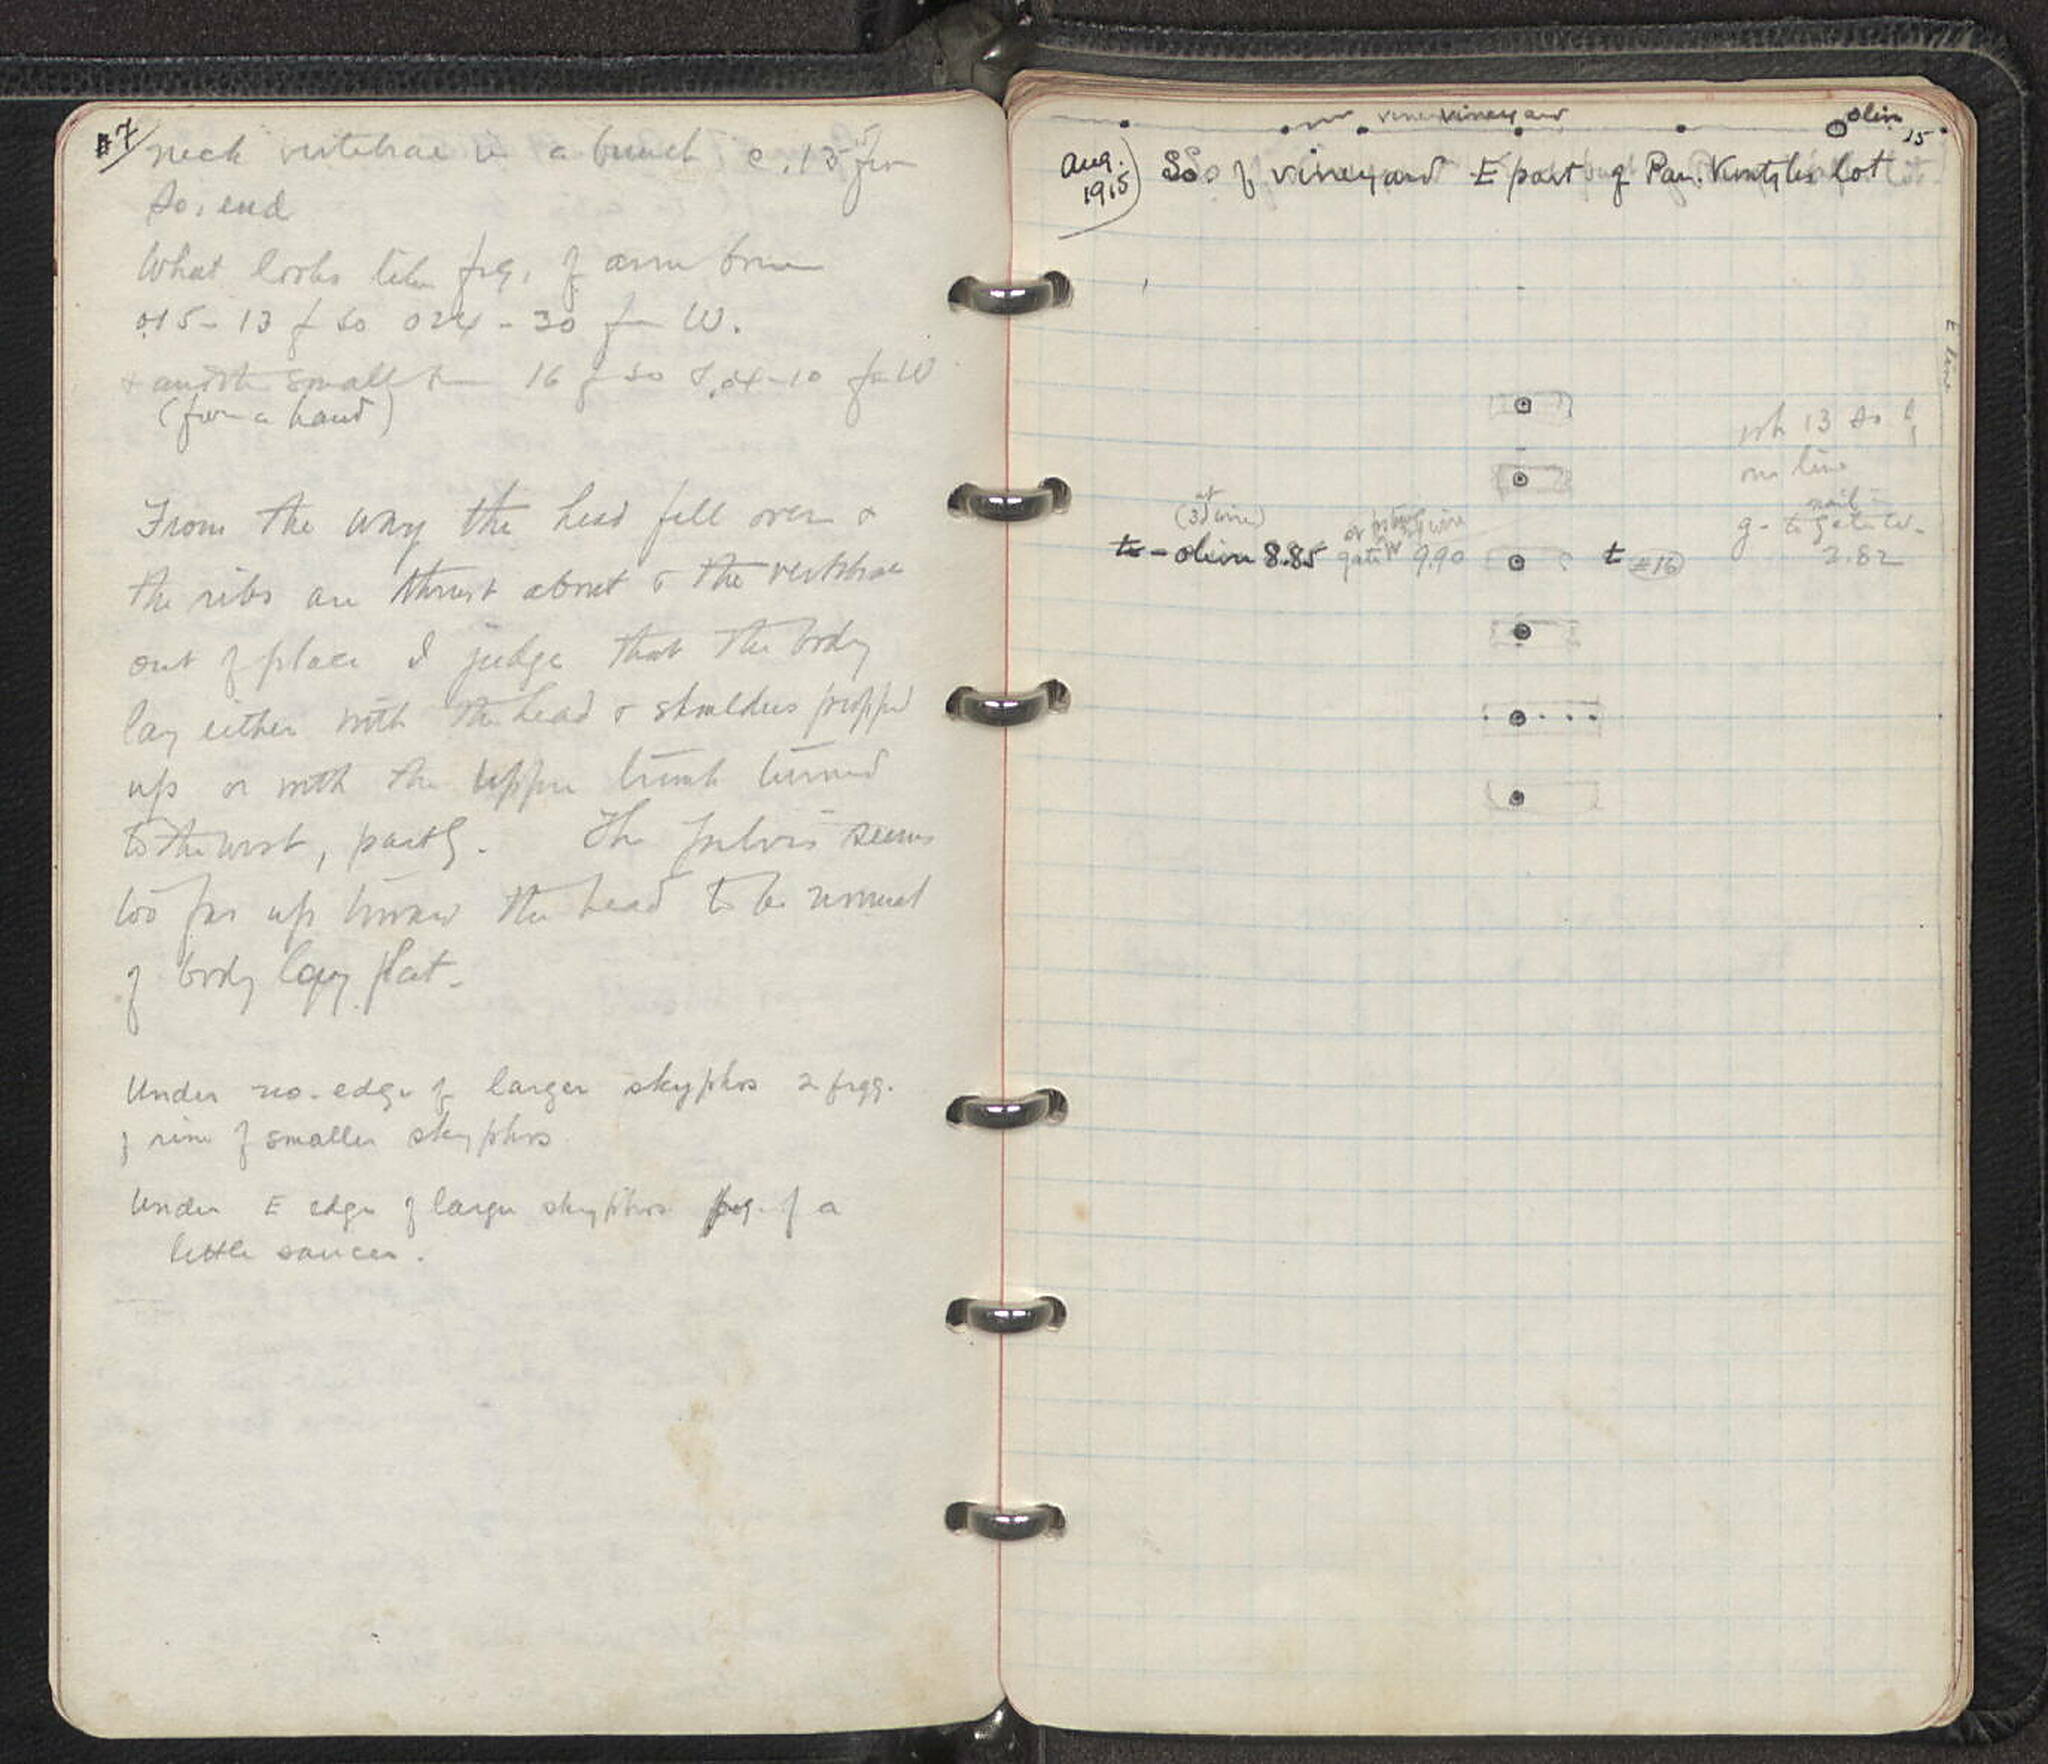 7/ neck vertebrae in a bunch c. 15 fr
So. end
What looks like frg. of arm bone
015-13 f So 024-30 fr W.
+ another small 16 f So & .04-10 fr W
(from a hand)
From the way the head fell over &
the ribs are thrust about & the vertebrae
out of place I judge that the body
lay either with the head & shoulders propped
up or with the upper trunk turned
to the west, partly. The pelvis seems
too far up toward the head to be normal
if body lay flat.
Under no. edge of larger skyphos 2 frgg.
of rim of smaller skyphos
Under E edge of larger skyphos frg. of a
little saucer.
vineyard
olive
15
Aug. 1915
So of vineyard E part of Pan. lot
E line
13 So
on line
nail
g- to gate W-
2.82
at
(3d wire)
to - olive 8.85
gate W 9.90
t #16